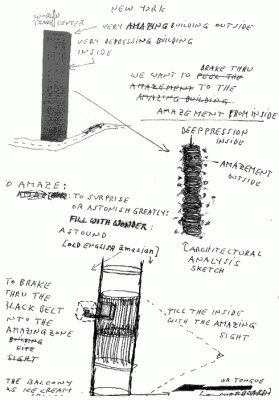 NEW YORK
WORLD
TRADE CENTER
VERY AMAZING BUILDING OUTSIDE
VERY DEPRESSING BUILDING
INSIDE
BRAKE THRU
WE WANT TO THE
AMAZEMENT TO THE
AMAZING BUILDING
AMAZEMENT FROM INSIDE
DEEPPRESSION
INSIDE
AMAZEMENT
OUTSIDE
O AMAZE:
TO SURPRISE
OR ASTONISH GREATLY:
FILL WITH WONDER:
ASTOUND
[OLD ENGLISH āmasian]
ARCHITECTURAL
ANALYSIS
SKETCH
TO BRAKE
THRU THE
BLACK BELT
INTO THE
AMAZING ZONE
SIGHT
FILL THE INSIDE
WITH THE AMAZING
SIGHT
THE BALCONY
AS ICE CREAM
OR TONGUE